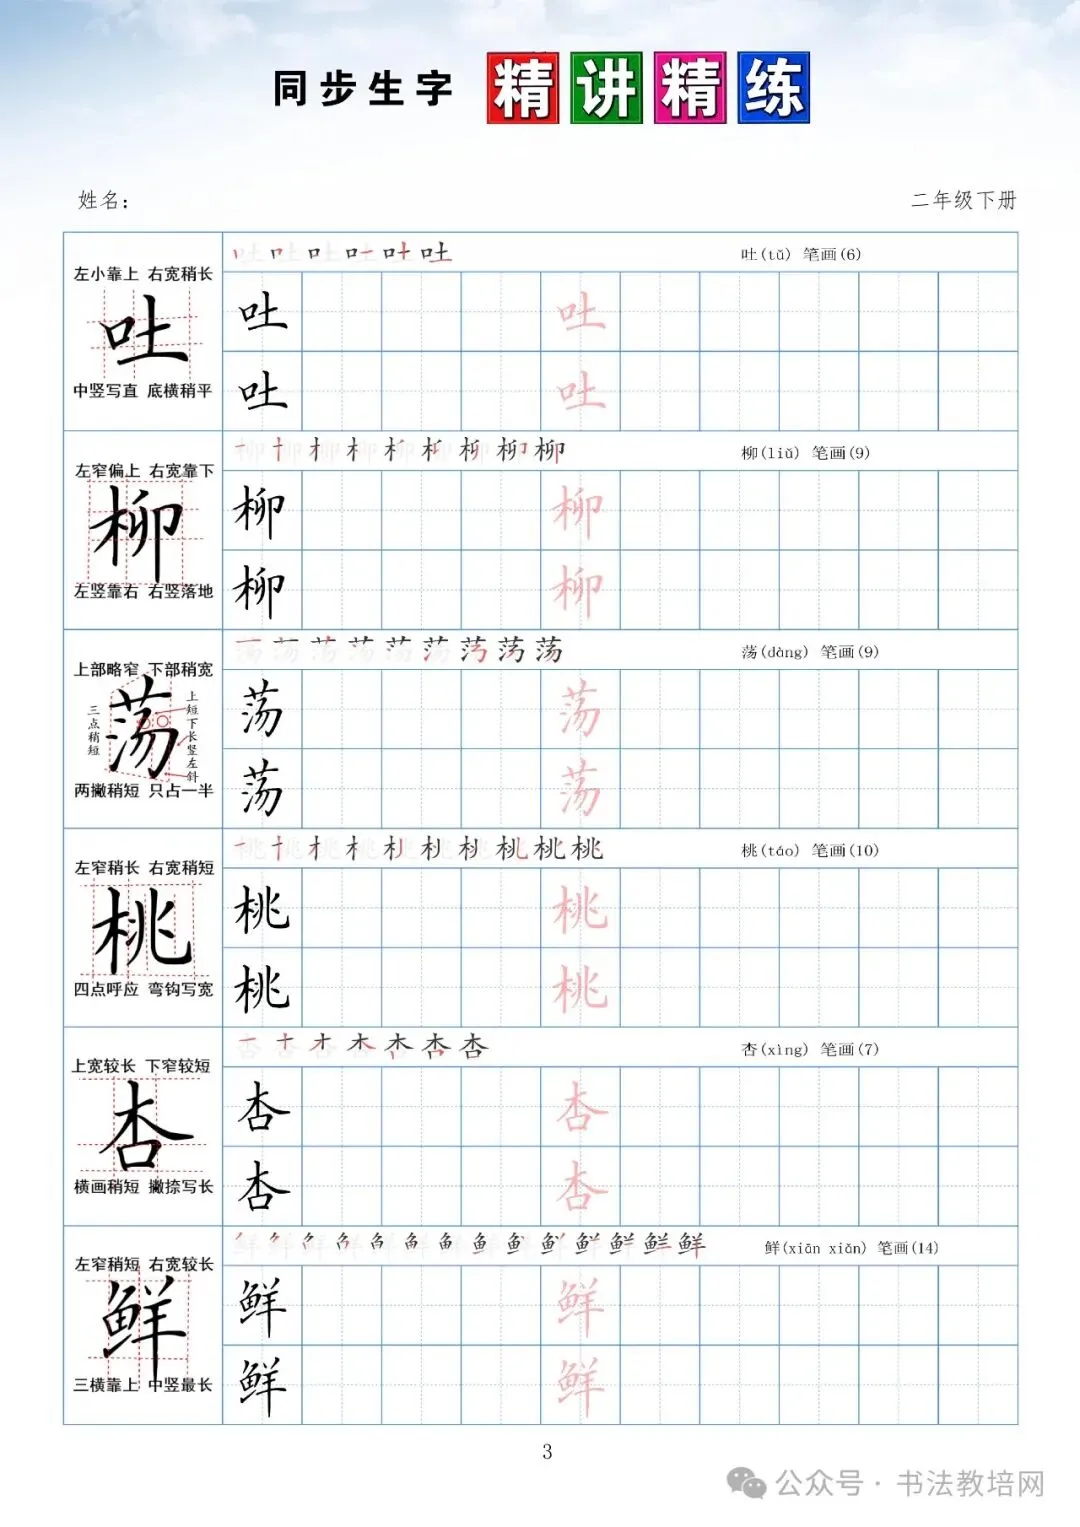 同步生字 精讲精练
姓名：
二年级下册
左小靠上 右宽稍长
吐
中竖写直 底横稍平
吐(tǔ) 笔画(6)
吐 吐
吐 吐
左窄偏上 右宽靠下
柳
左竖靠右 右竖落地
柳(liǔ) 笔画(9)
柳 柳
柳 柳
上部略窄 下部稍宽
荡
三点稍短
上短下长竖左斜
两撇稍短 只占一半
荡(dàng) 笔画(9)
荡 荡
荡 荡
左窄稍长 右宽稍短
桃
四点呼应 弯钩写宽
桃(táo) 笔画(10)
桃 桃
桃 桃
上宽较长 下窄较短
杏
横画稍短 撇捺写长
杏(xìng) 笔画(7)
杏 杏
杏 杏
左窄稍短 右宽较长
鲜
三横靠上 中竖最长
鲜(xiān xiǎn) 笔画(14)
鲜 鲜
鲜 鲜
3
公众号·书法教培网